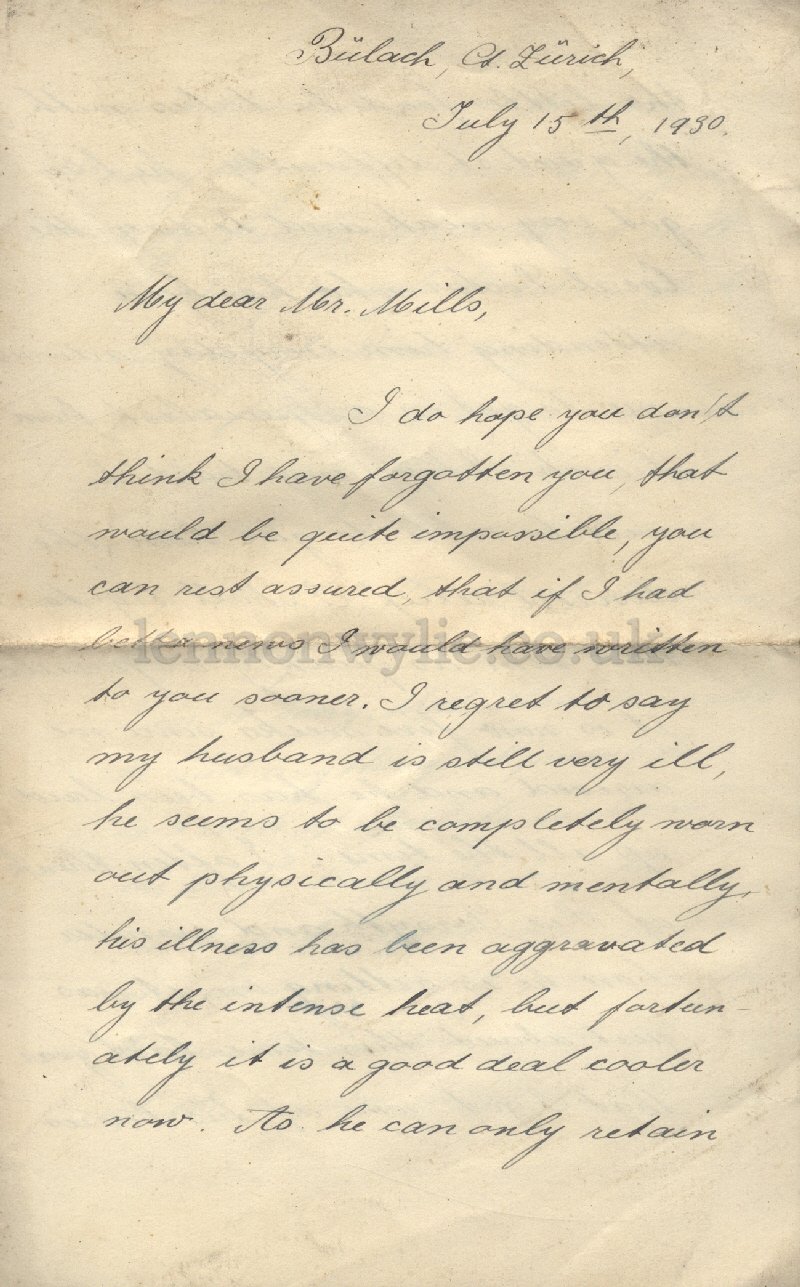 Bülach, Ct. Zürich,
July 15th, 1930.
My dear Mr. Mills,
I do hope you don't
think I have forgotten you, that
would be quite impossible, you
can rest assured, that if I had
better news I would have written
lennonwylie.co.uk
to you sooner. I regret to say
my husband is still very ill,
he seems to be completely worn
out physically and mentally,
his illness has been aggravated
by the intense heat, but fortun-
ately it is a good deal cooler
now. As he can only retain